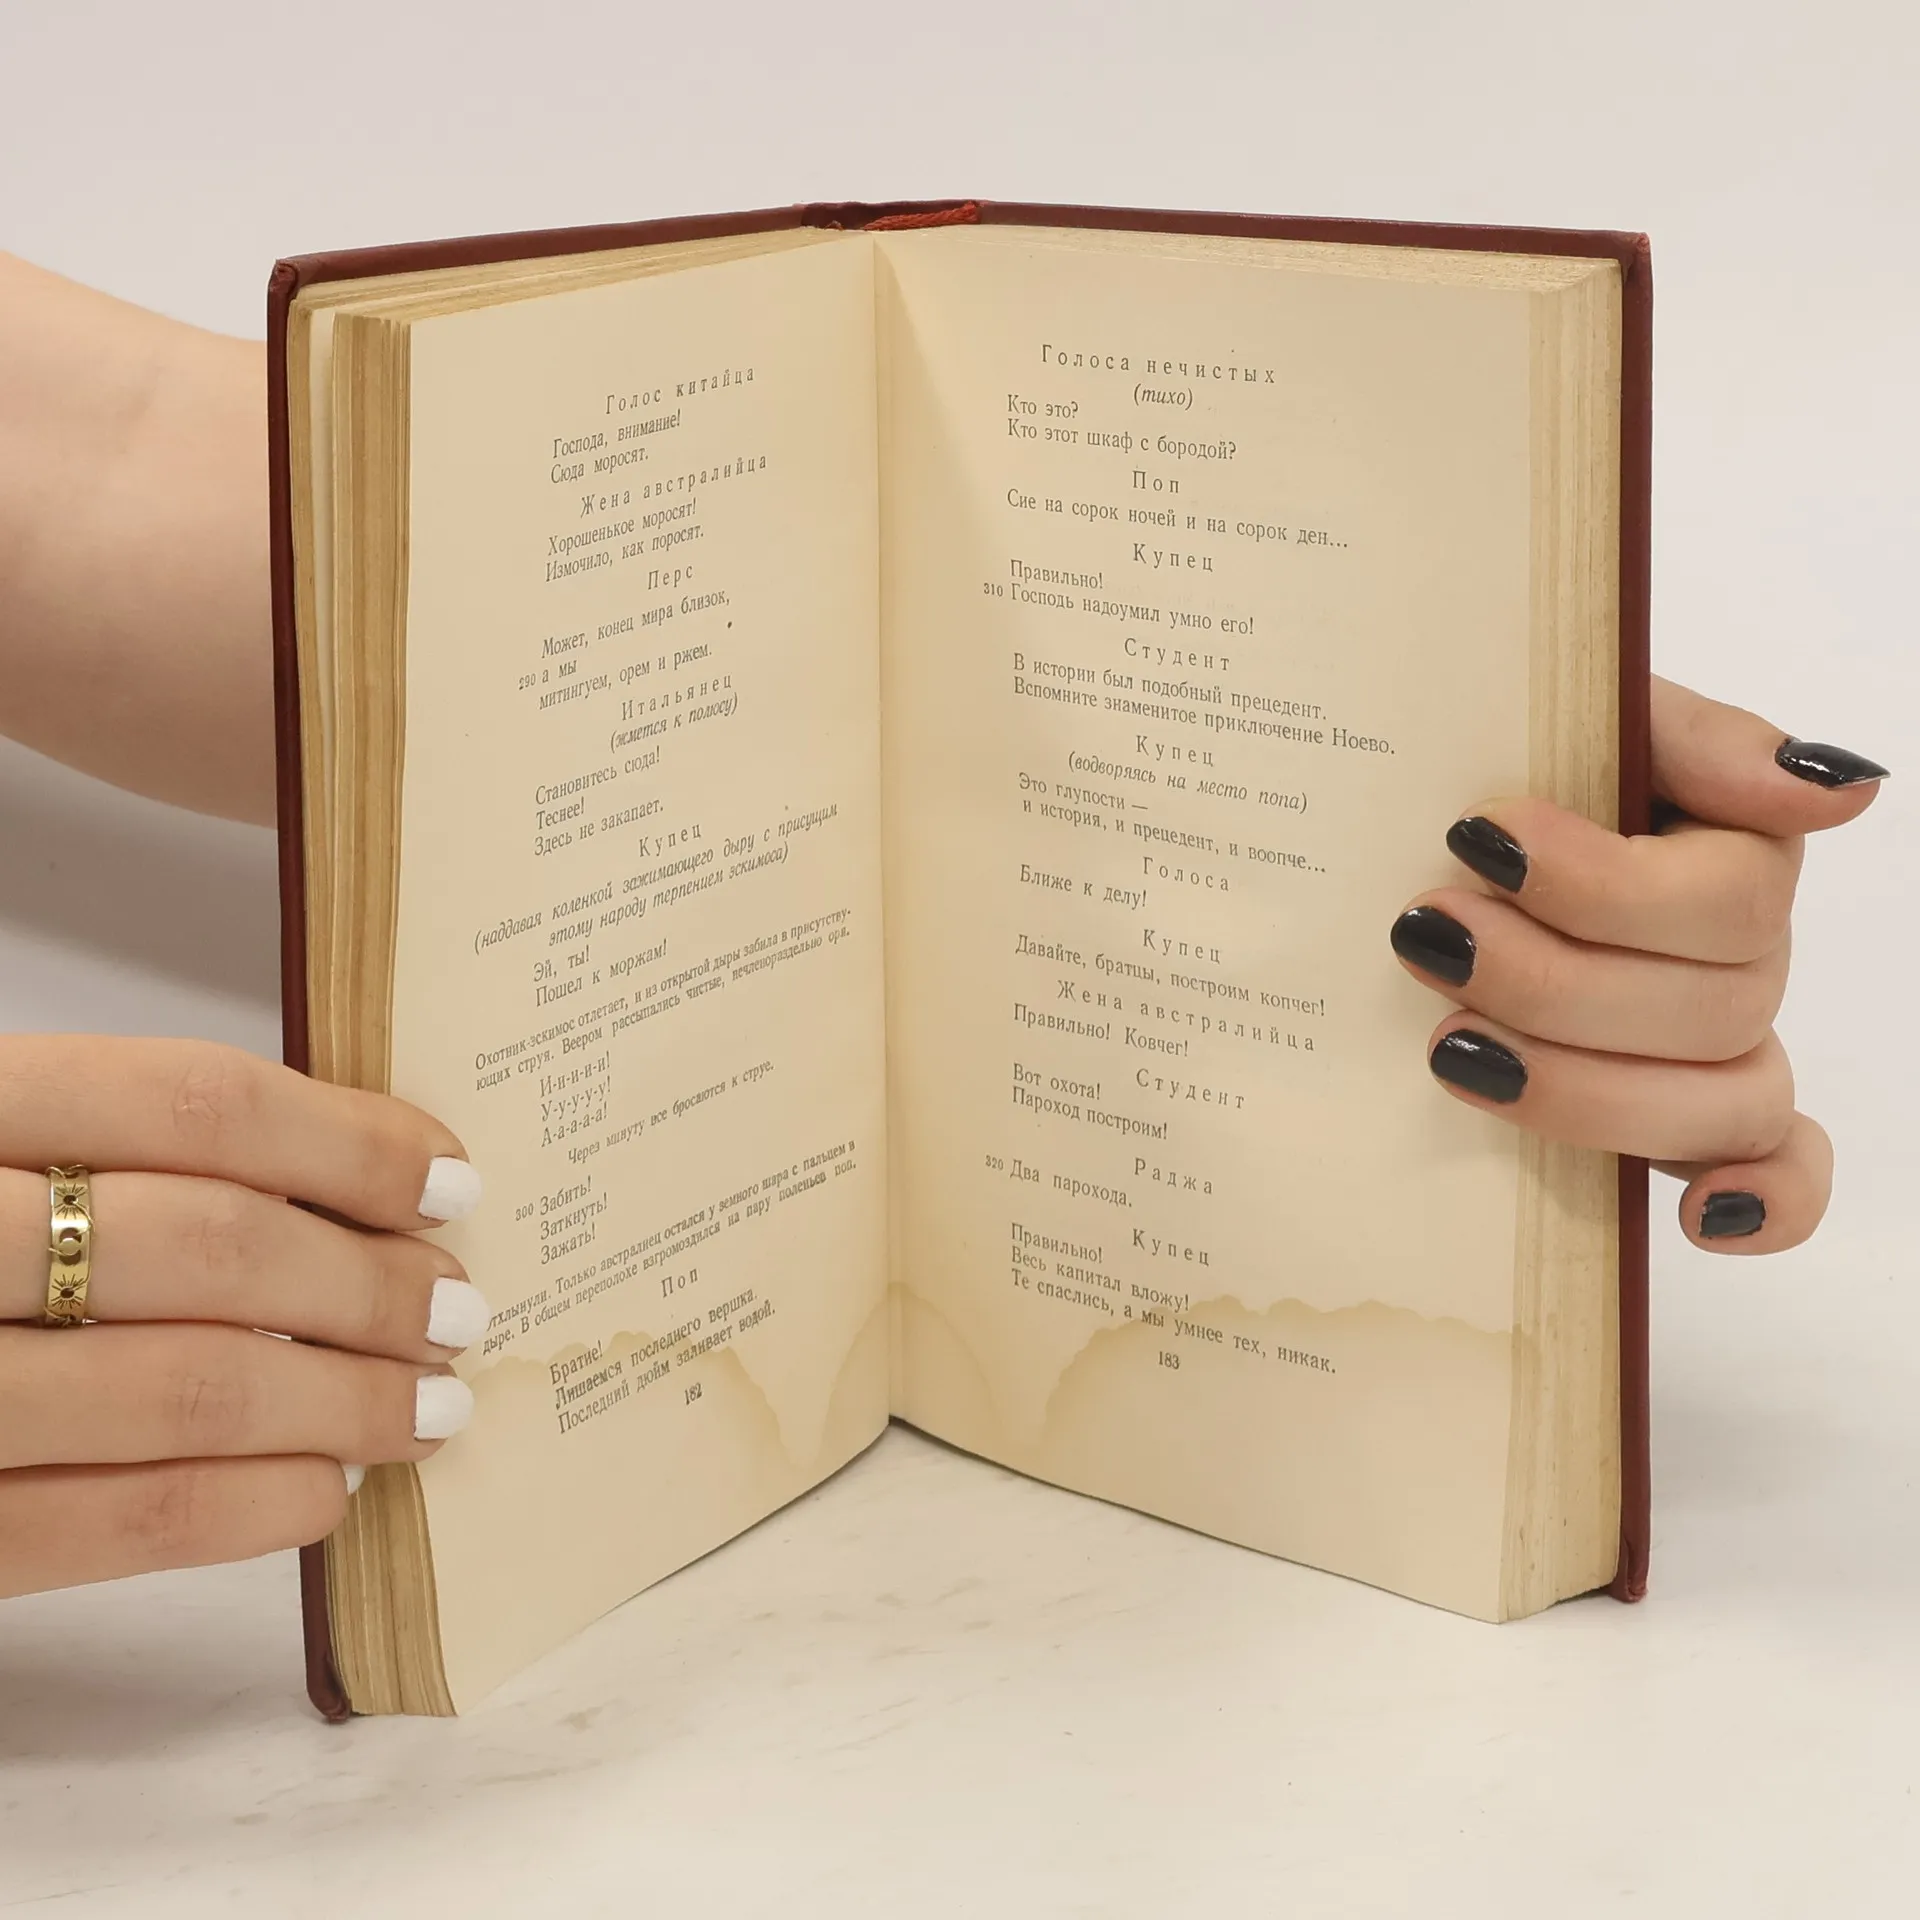 Голос китайца
Господа, внимание!
Сюда моросят.
Жена австралийца
Хорошенькое моросят!
Измочило, как поросят.
Перс
Может, конец мира близок,
290 а мы
митингуем, орем и ржем.
Итальянец
(жмется к полюсу)
Становитесь сюда!
Теснее!
Здесь не закапает.
Купец
(наддавая коленкой зажимающего дыру с присущим
этому народу терпением эскимоса)
Эй, ты!
Пошел к моржам!
Охотник-эскимос отлетает, и из открытой дыры забила в присутству-
ющих струя. Веером рассыпались чистые, нечленораздельно оря.
И-и-и-и-и!
У-у-у-у-у!
А-а-а-а-а!
Через минуту все бросаются к струе.
300 Забить!
Заткнуть!
Зажать!
тхлынули. Только австралиец остался у земного шара с пальцем в
дыре. В общем переполохе взгромоздился на пару поленьев поп.
Поп
Братие!
Лишаемся последнего вершка.
Последний дюйм заливает водой.
182
Голоса нечистых
(тихо)
Кто это?
Кто этот шкаф с бородой?
Поп
Сие на сорок ночей и на сорок ден...
Купец
Правильно!
310 Господь надоумил умно его!
Студент
В истории был подобный прецедент.
Вспомните знаменитое приключение Ноево.
Купец
(водворяясь на место попа)
Это глупости —
и история, и прецедент, и воопче...
Голоса
Ближе к делу!
Купец
Давайте, братцы, построим копчег!
Жена австралийца
Правильно! Ковчег!
Студент
Вот охота!
Пароход построим!
Раджа
320 Два парохода.
Купец
Правильно!
Весь капитал вложу!
Те спаслись, а мы умнее тех, никак.
183